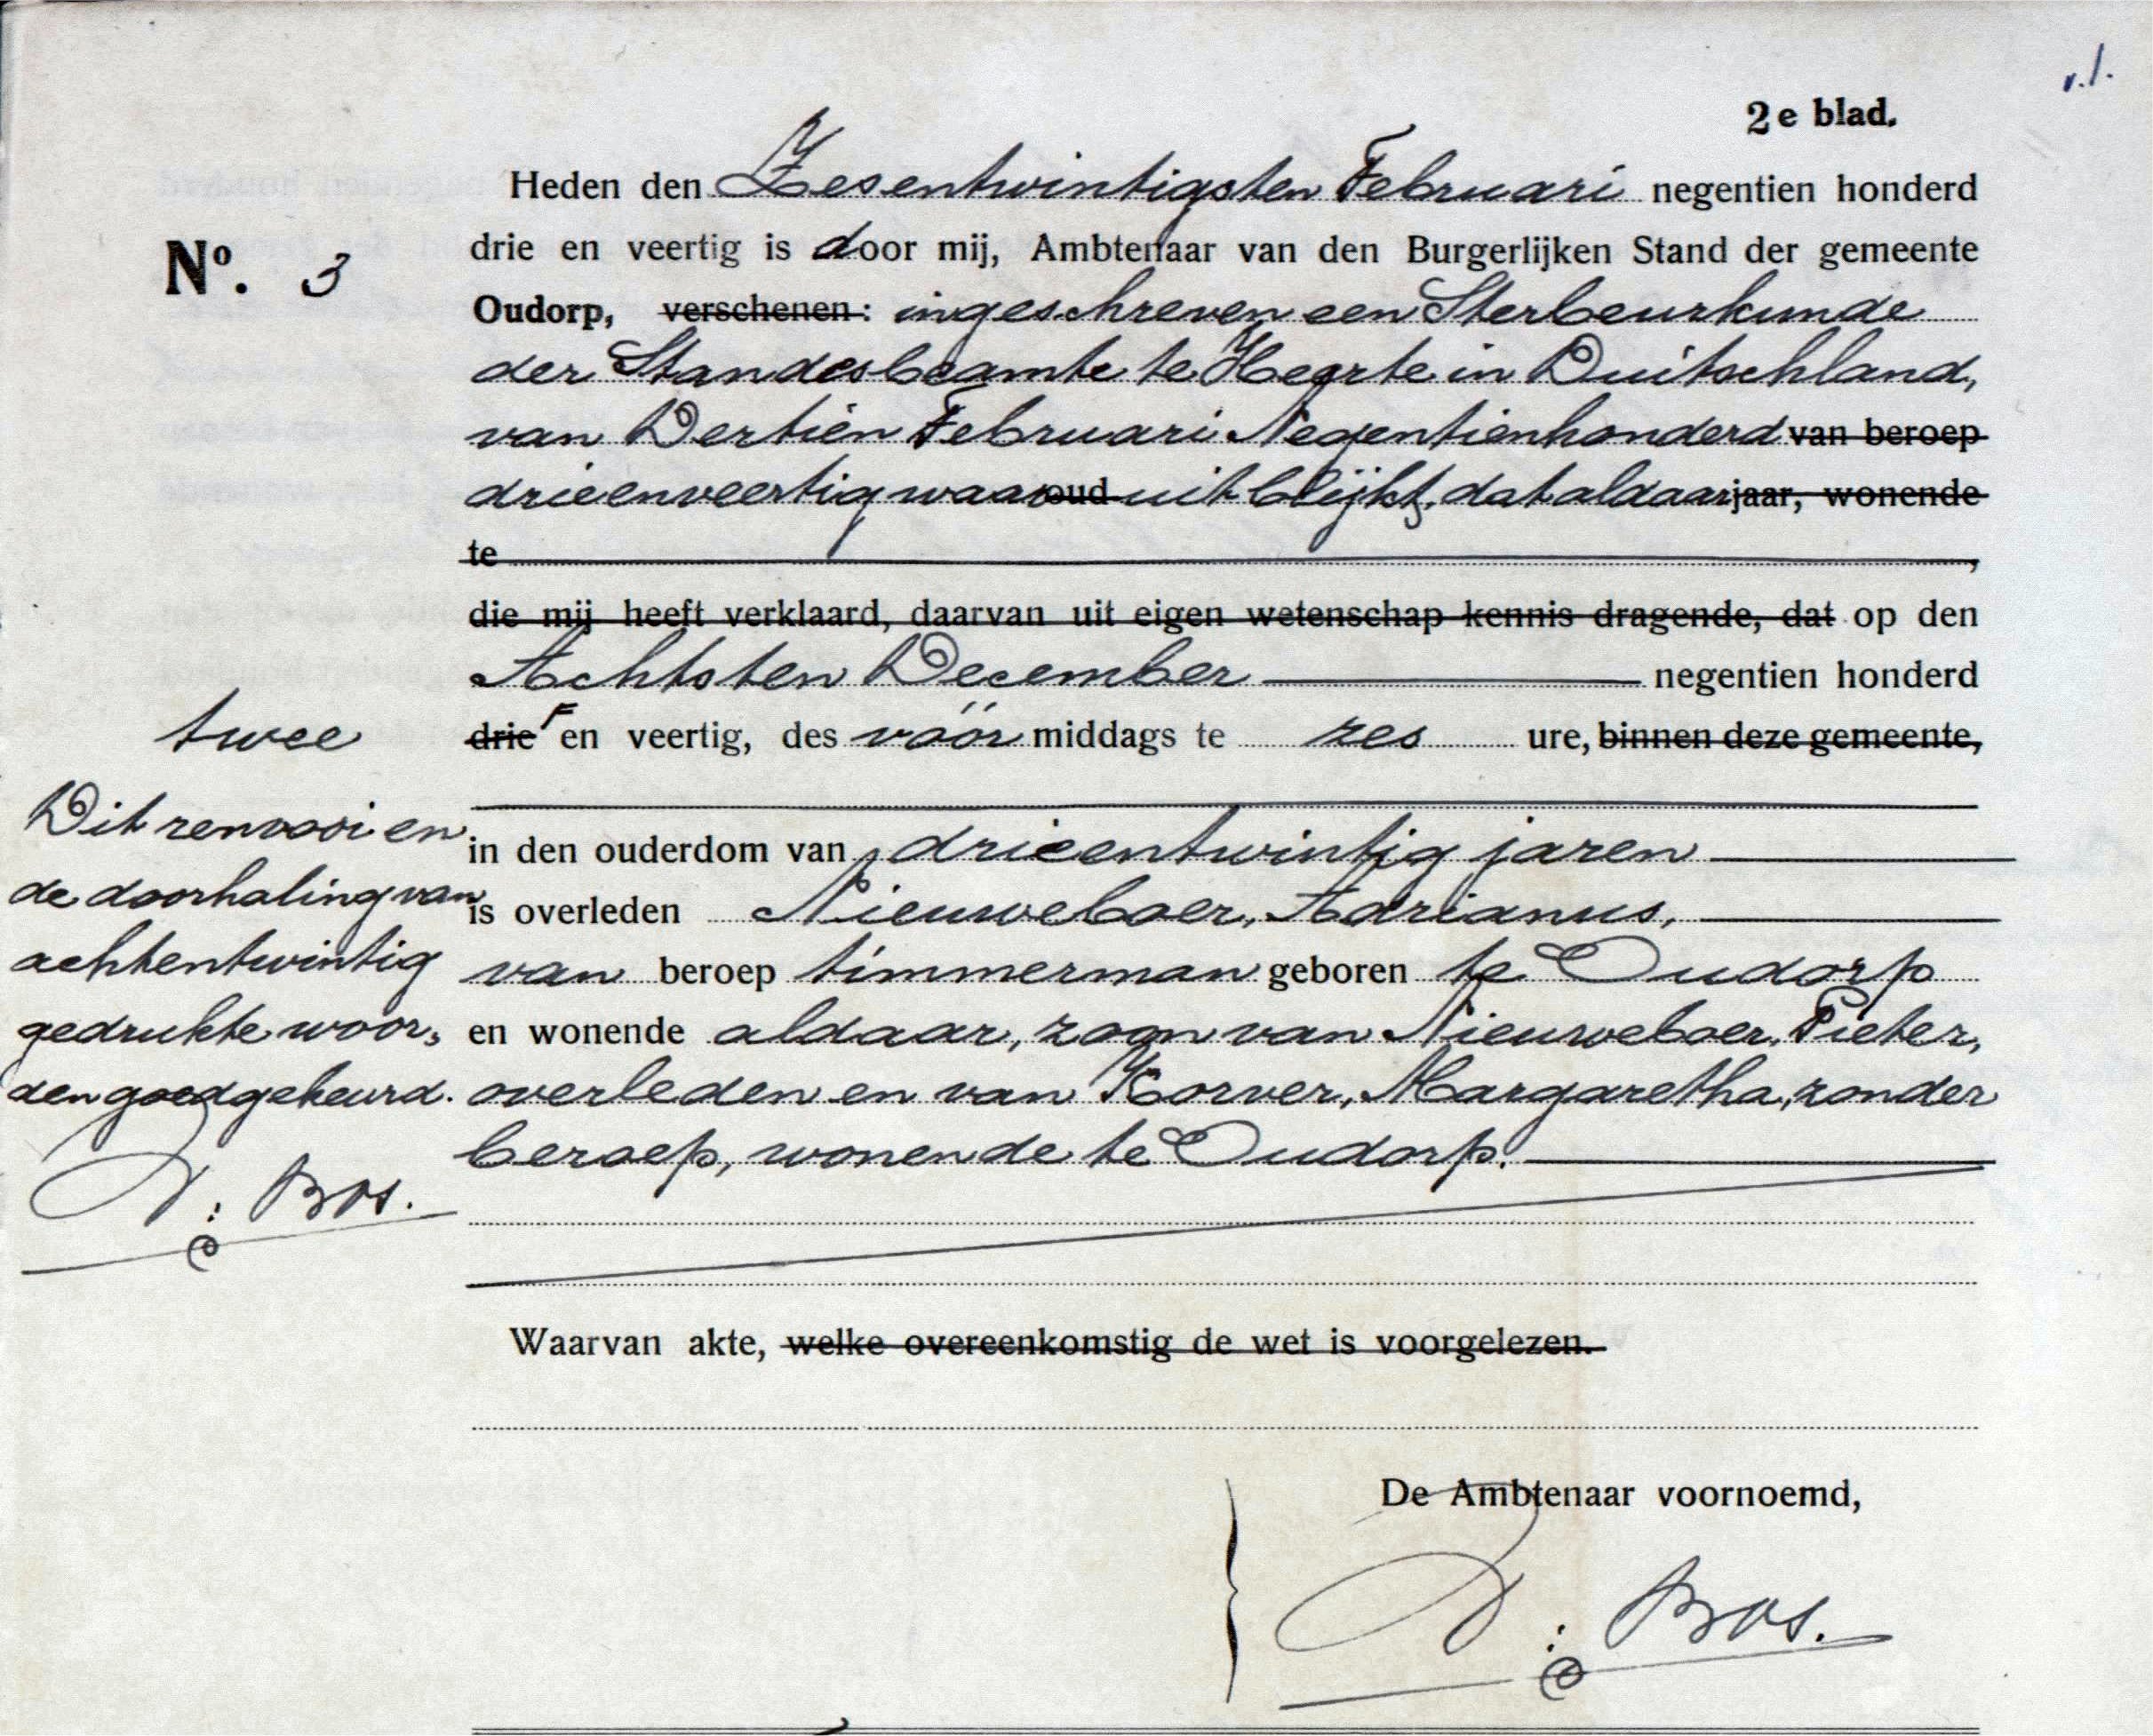 v.1.
2e blad.
Heden den Zesentwintigsten Februari negentien honderd
No. 3
drie en veertig is door mij, Ambtenaar van den Burgerlijken Stand der gemeente
Oudorp, verschenen: ingeschreven een Sterbeurkunde
der Standesbeamte te Heerte in Duitschland,
van Dertien Februari Negentienhonderd van beroep
drieenveertig waar oud uit blijkt, dat aldaar jaar, wonende
te ,
die mij heeft verklaard, daarvan uit eigen wetenschap kennis dragende, dat op den
Achtsten December negentien honderd
drie en veertig, des vóór middags te zes ure, binnen deze gemeente,
in den ouderdom van drieentwintig jaren
is overleden Nieuweboer, Adrianus,
van beroep timmerman geboren te Oudorp
en wonende aldaar, zoon van Nieuweboer, Pieter,
overleden en van Korver, Margaretha, zonder
beroep, wonende te Oudorp.
twee
Dit renvooi en
de doorhaling van
achtentwintig
gedrukte woor-
den goedgekeurd.
D: Bos.
Waarvan akte, welke overeenkomstig de wet is voorgelezen.
De Ambtenaar voornoemd,
D: Bos.